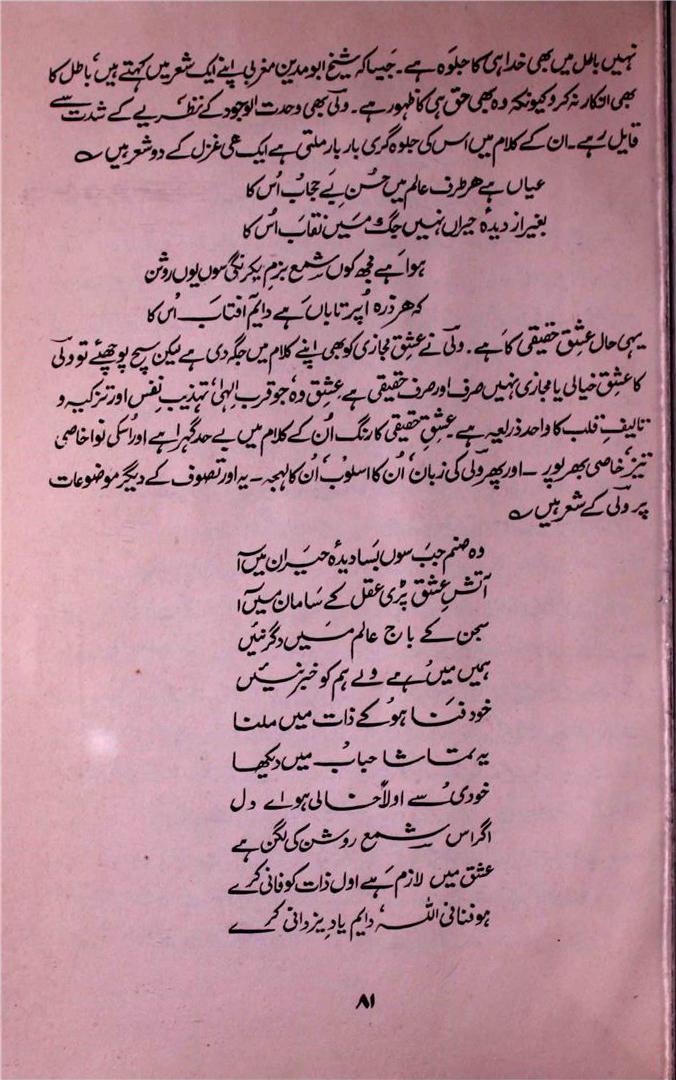 نہیں باطل میں بھی خدا ہی کا جلوہ ہے۔ جیسا کہ شیخ ابو مدین مغربی اپنے ایک شعر میں کہتے ہیں، باطل کا
بھی انکار نہ کرو کیونکہ وہ بھی حق ہی کا ظہور ہے۔ ولی بھی وحدت الوجود کے نظریے کے شدت سے
قایل رہے۔ ان کے کلام میں اس کی جلوہ گری بار بار ملتی ہے ایک ہی غزل کے دو شعر ہیں ؎
عیاں ہے ہر طرف عالم میں حسن بے حجاب اُس کا
بغیر از دیدۂ حیراں نہیں جگ میں نقاب اُس کا
ہوا ہے مجھ کوں شمع بزم یکرنگی سوں یوں روشن
کہ ہر ذرہ اُپر تاباں ہے دایم آفتاب اُس کا
یہی حال عشق حقیقی کا ہے۔ ولی نے عشق مجازی کو بھی اپنے کلام میں جگہ دی ہے لیکن سچ پوچھئے تو ولی
کا عشق خیالی یا مجازی نہیں صرف اور صرف حقیقی ہے عشق وہ، جو قرب الہٰی، تہذیب نفس اور تزکیہ و
تالیف قلب کا واحد ذریعہ ہے۔ عشق حقیقی کا رنگ اُن کے کلام میں بے حد گہرا ہے اور اُسکی نوا خاصی
تیز، خاصی بھرپور ــ اور پھر ولی کی زبان، اُن کا اسلوب، اُن کا لہجہ ــ یہ اور تصوف کے دیگر موضوعات
پر ولی کے شعر ہیں ؎
وہ صنم جب سوں بسا دیدۂ حیران میں آ
آتش عشق پڑی عقل کے سامان میں آ
سجن کے باج عالم میں دگر نئیں
ہمیں میں ہے ولے ہم کو خبر نئیں
خود فنا ہو کے ذات میں ملنا
یہ تماشا حباب میں دیکھا
خودی سے اولاً خالی ہو اے دل
اگر اس شمع روشن کی لگن ہے
عشق میں لازم ہے اول ذات کو فانی کرے
ہو فنا فی اللہ، دایم یاد یزدانی کرے
۸۱